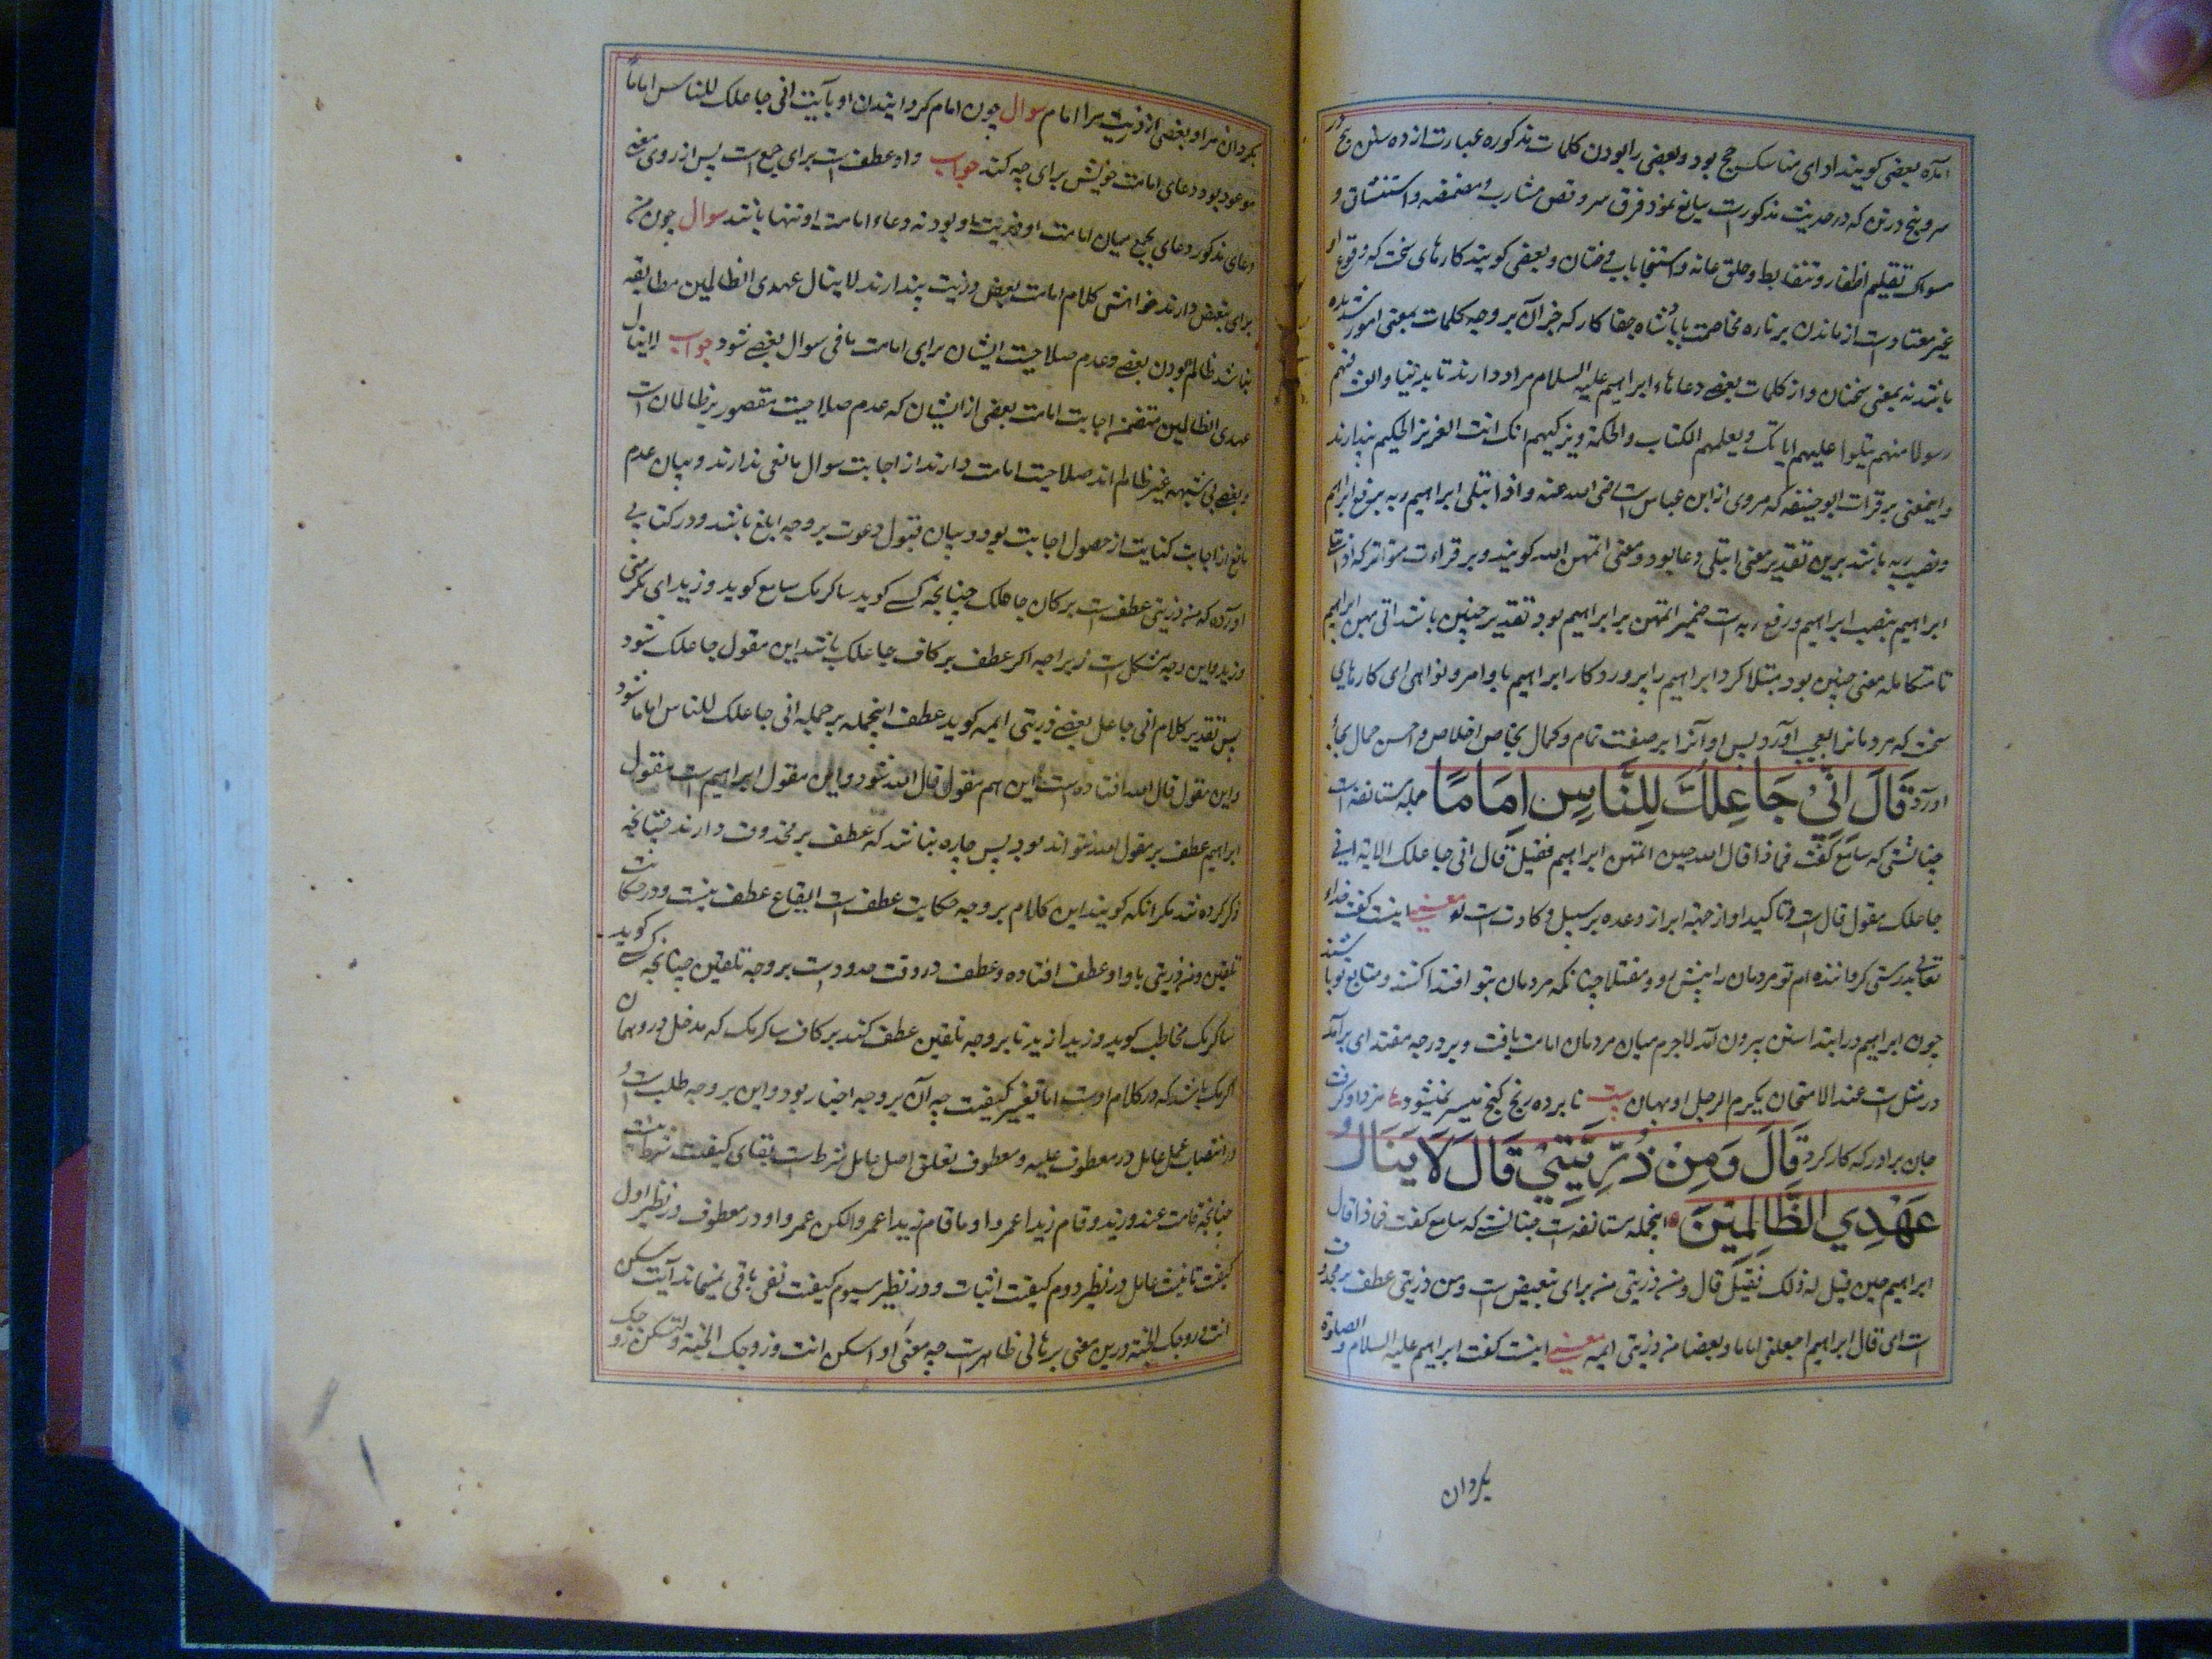 آمده بعضی کویند ادای مناسک حج بود و بعضی را بودن کلمات مذکوره عبارت از ده سنن پنج در
سر و پنج در تن که در حدیث مذکورست بیانغ نمود فرق سر و قص شارب و مضمضه و استنشاق و
سواک تقلیم اظفار و نتف ابط و حلق عانه و استنجا باب و ختان و بعضی کویند کارهای سخت که وقوع او
غیر معتادست از ماندن بر ناره مخاصمت با پادشاه جفاکار که خبر آن بر وجه کلمات بمعنی امور شدیده
باشد نه بمعنی سخنان و از کلمات بعضی دعاهاء ابراهیم علیه السلام مراد دارند تا بد بنا وابعث فیهم
رسولا منهم یتلوا علیهم ایاتک ویعلمهم الکتاب والحکمة ویزکیهم انک انت العزیز الحکیم پندارند
و اینمعنی بر قرات ابو حنیفه که مروی از ابن عباس است رضی الله عنه و اذا ابتلی ابراهیم ربه برفع ابراهیم
و نصب ربه باشد برین تقدیر معنی ابتلی دعا بود و معنی اتمهن الله کویند و بر قراءت متواتر که اذ ابتلی
ابراهیم بنصب ابراهیم و رفع ربه است ضمیر اتمهن بر ابراهیم بود تقدیر چنین باشد اتی بهن ابراهیم
تامه کامله معنی چنین بود مبتلا کرد ابراهیم را پروردکار ابراهیم باوامر و نواهی ای کارهای
سخت که مردمانرا بعجب آورد پس او آنرا بر صفت تمام و کمال بخاص اخلاص و احسن جمال بجا
اورد قَالَ اِنِّیْ جَاعِلُكَ لِلنَّاسِ اِمَامًا جمله مستانفه است
چنانستی که سامع کفت فماذا قال الله حین اتمهن ابراهیم فقیل قال انی جاعلک الایه انی
جاعلک مقول قال است و تاکید او از جهة ابراز وعده بر سبیل وکادت است و معنی اینست کفت خداء
تعالی بدرستی کرداننده ام تو مردمان را پیش رو و مقتدا چنانکه مردمان بتو اقتدا کنند و متابع تو باشند
چون ابراهیم در ابتدا سنن بیرون آمد لاجرم میان مردمان امامت یافت و بر درجه مقتدای برآمد
در مثل است عند الامتحان یکرم الرجل او یهان بیت نا برده رنج کنج میسر نمیشود مزد او کرفت
جان برادر که کار کرد قَالَ وَمِنْ ذُرِّیَّتِیْ قَالَ لَا یَنَالُ
عَهْدِي الظَّالِمِیْنَ اینجمله مستانفه است چنانستی که سامع کفت فماذا قال
ابراهیم حین قیل له ذلک فقیل قال ومن ذریتی من برای تبعیض است ومن ذریتی عطف بر محذوف
است ای قال ابراهیم اجعلنی اماما وبعضا من ذریتی ایمه معنی اینست کفت ابراهیم علیه السلام والصلوة
بکردان
بکردان مرا و بعضی از ذریت مرا امام سوال چون امام کردانیدن او بآیت انی جاعلک للناس اماما
موعود بود دعای امامت خویش برای چه کند جواب واو عطف است برای جمع است پس از روی معنی
دعای مذکور دعای بجمع میان امامت او و ذریت او بود نه دعاء امامت او تنها باشد سوال چون من
برای تبعیض دارند خواهش کلام امامت بعض ذریت پندارند لا ینال عهدی الظالمین مطابقه
نباشد ظالم بودن بعضی و عدم صلاحیت ایشان برای امامت مافی سوال بعضی نشود جواب لا ینال
عهدی الظالمین متضمن اجابت امامت بعضی از ایشان که عدم صلاحیت مقصور بر ظالمان است
و بعضی بی شبهه غیر ظالم اند صلاحیت امامت دارند از اجابت سوال مانعی ندارند و بیان عدم
مانع از اجابت کنایت از حصول اجابت بود و بیان قبول دعوت بر وجه ابلغ باشد و در کتابی
آورده که من ذریتی عطف است بر کاف جاعلک چنانچه کسی کوید ساکرمک سامع کوید وزیدا ای تکرمنی
وزیدا و این وجه مشکل است زیرا چه اکر عطف بر کاف جاعلک باشد این مقول جاعلک شود
پس تقدیر کلام انی جاعل بعضی ذریتی ایمه کوید عطف اینجمله بر جمله انی جاعلک للناس اماما شود
و این مقول قال الله افتاده است این هم مقول قال الله شود و این مقول ابراهیم است مقول
ابراهیم عطف بر مقول الله نتواند بود پس چاره نباشد که عطف بر محذوف دارند چنانچه
ذکر کرده شد مکر آنکه کویند این کلام بر وجه حکایت عطف است ایقاع عطف نیست و در حکایت
تلقین ومن ذریتی با واو عطف افتاده و عطف در وقت بدوست بر وجه تلقین چنانچه کسی کوید
ساکرمک مخاطب کوید وزیدا زید تا بر وجه تلقین عطف کند بر کاف ساکرمک که مدخل در و همان
اکرمک باشد که در کلام اوست اما تغییر کیفیت چه آن بر وجه اخبار بود و این بر وجه طلب است و
در انتصاب عمل عامل در معطوف علیه و معطوف تعلق اصل عامل شرط است بقای کیفیت شرط نیست
چنانچه قامت هند و زید و قام زیدا عمروا و ما قام زیدا عمرو الکن عمرو او در معطوف در نظیر اول
کیفیت تانیث عامل در نظیر دوم کیفیت اثبات و در نظیر سیوم کیفیت نفی باقی نمیماند آیت اسکن
انت وزوجک الجنة درین معنی برهانی ظاهرست چه معنی او اسکن انت وزوجک الجنة ولتسکن زوجک